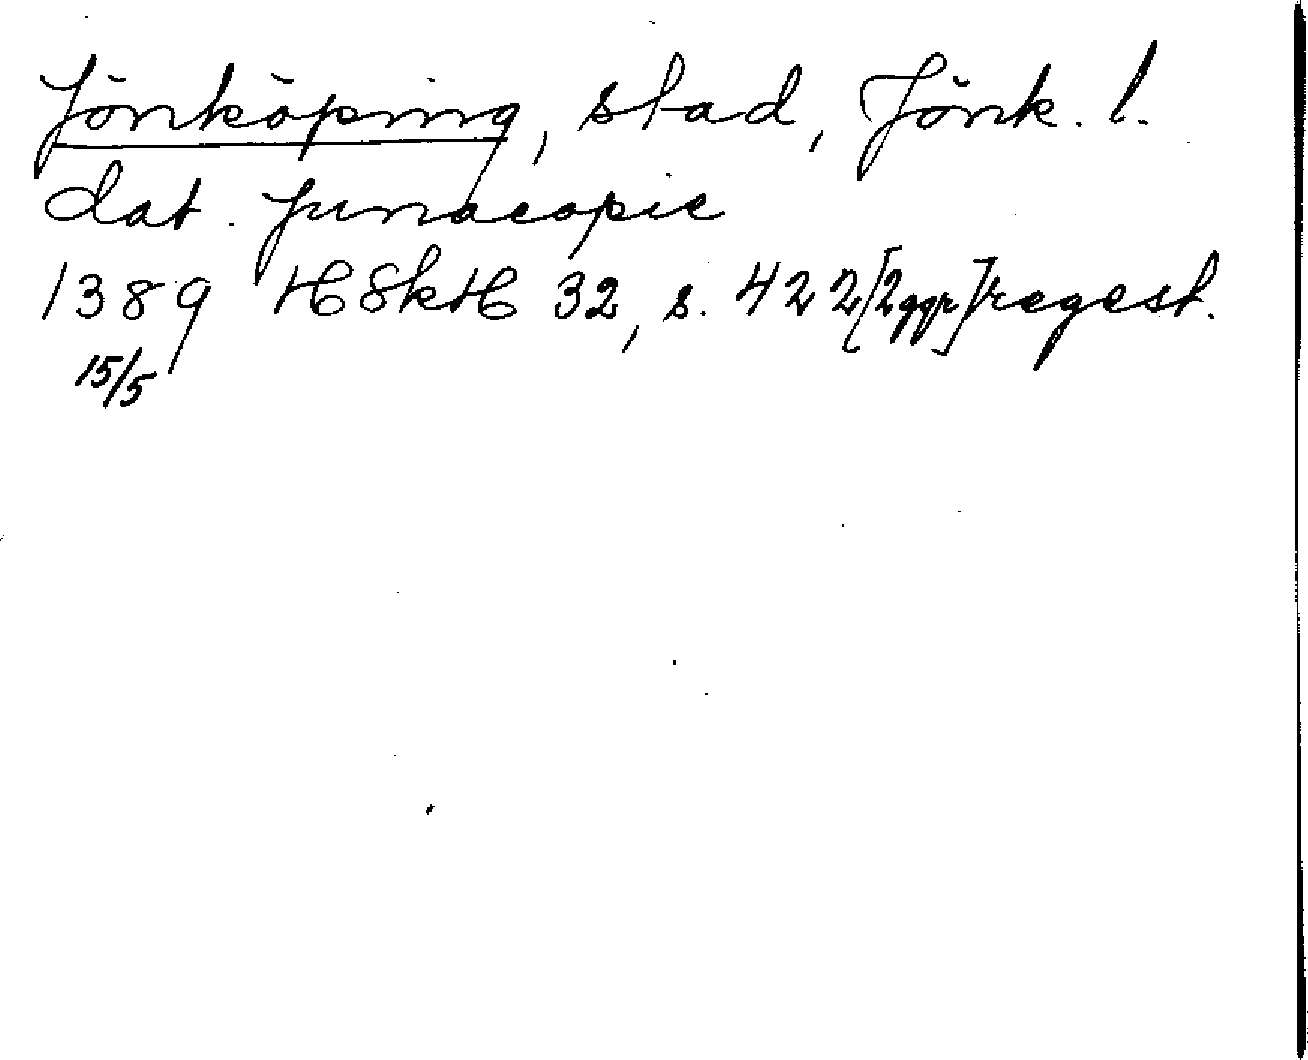 Jönköping, stad, Jönk. l.
dat. Junacopie
1389 HSkH 32, s. 422 [2 ggr] regest.
15/5